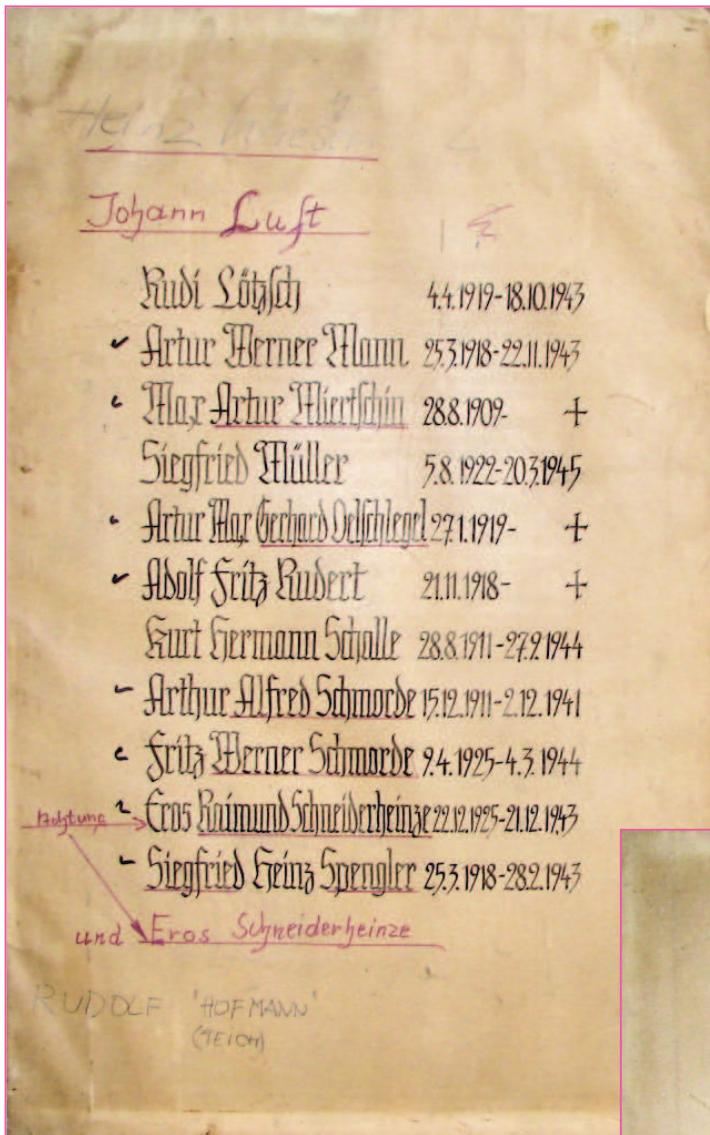 Heinz
Johann Luft
Rudi Lötzsch 4.4.1919-18.10.1943
Artur Werner Mann 25.3.1918-22.11.1943
Max Artur Miertschin 28.8.1909- +
Siegfried Müller 5.8.1922-20.3.1945
Artur Max Gerhard Oelschlegel 27.1.1919- +
Adolf Fritz Rudert 21.11.1918- +
Kurt Hermann Schalle 28.8.1911-27.9.1944
Arthur Alfred Schmorde 15.12.1911-2.12.1941
Fritz Werner Schmorde 9.4.1925-4.3.1944
Achtung Eros Raimund Schneiderheinze 22.12.1925-21.12.1943
Siegfried Heinz Spengler 25.3.1918-28.2.1943
und Eros Schneiderheinze
RUDOLF 'HOFMANN'
(TEICH)